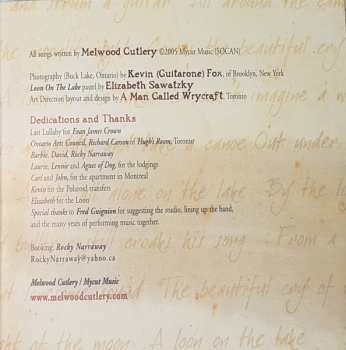 All songs written by Melwood Cutlery ©2005 Mycut Music (SOCAN)
Photography (Buck Lake, Ontario) by Kevin (Guitarone) Fox, of Brooklyn, New York
Loon On The Lake pastel by Elizabeth Sawatzky
Art Direction layout and design by A Man Called Wrycraft, Toronto
Dedications and Thanks
Last Lullaby for Evan James Crown
Ontario Arts Council, Richard Carson (of Hugh's Room, Toronto)
Barbie, David, Rocky Narraway
Laurie, Lennie and Agnes of Dog, for the lodgings
Carl and John, for the apartment in Montreal
Kevin for the Polaroid transfers
Elizabeth for the Loon
Special thanks to Fred Guignion for suggesting the studio, lining up the band,
and the many years of performing music together.
Booking: Rocky Narraway
RockyNarraway@yahoo.ca
Melwood Cutlery / Mycut Music
www.melwoodcutlery.com
around the cam
the beautiful cry of
imagine a w
a canoe Out under
alone on the lake
By the l
croaks his song
From a
"The beautiful cry of
t of the moon A loon on the lake